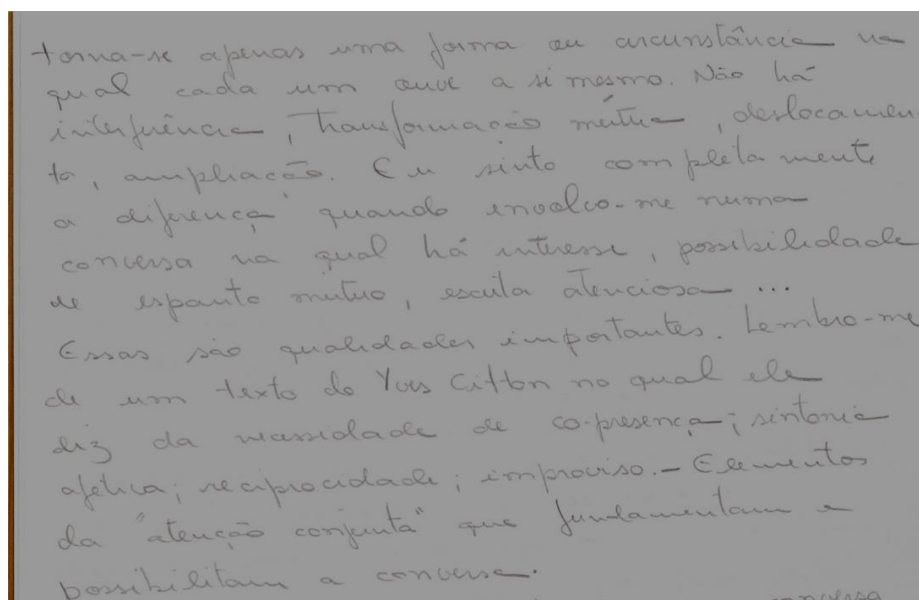 torna-se apenas uma forma ou circunstância na
qual cada um ouve a si mesmo. Não há
interferência, transformação mútua, deslocamen-
to, ampliação. Eu sinto completamente
a diferença quando envolvo-me numa
conversa na qual há interesse, possibilidade
de espanto mútuo, escuta atenciosa ...
Essas são qualidades importantes. Lembro-me
de um texto do Yves Citton no qual ele
diz da necessidade de co-presença; sintonia
afetiva; reciprocidade; improviso. - Elementos
da "atenção conjunta" que fundamentam e
possibilitam a conversa.
conversa